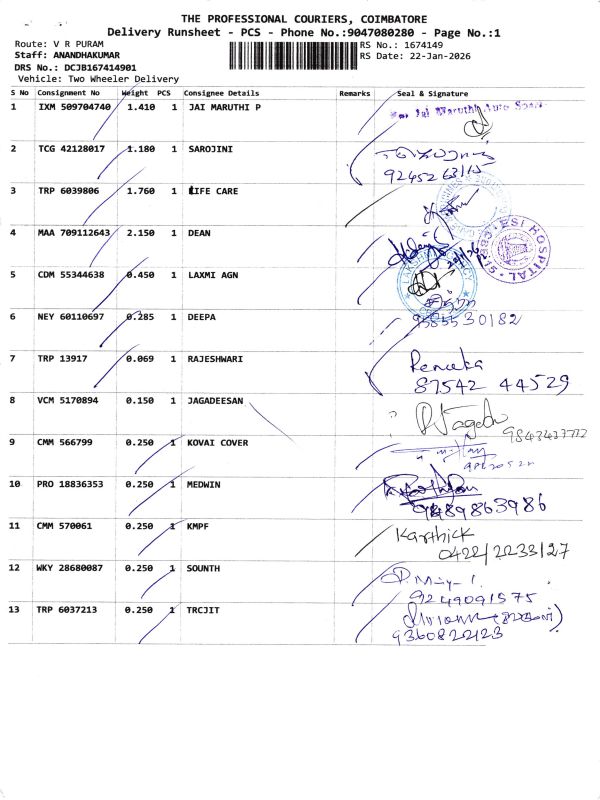 THE PROFESSIONAL COURIERS, COIMBATORE
Delivery Runsheet - PCS - Phone No.:9047080280 - Page No.:1
Route: V R PURAM
RS No.: 1674149
Staff: ANANDHAKUMAR
RS Date: 22-Jan-2026
DRS No.: DCJB167414901
Vehicle: Two Wheeler Delivery
S No Consignment No Weight PCS Consignee Details Remarks Seal & Signature
1 IXM 509704740 1.410 1 JAI MARUTHI P
2 TCG 42128017 1.180 1 SAROJINI
9245263115
3 TRP 6039806 1.760 1 LIFE CARE
4 MAA 709112643 2.150 1 DEAN
ESI HOSPITAL
5 CDM 55344638 0.450 1 LAXMI AGN
6 NEY 60110697 0.285 1 DEEPA
7 TRP 13917 0.069 1 RAJESHWARI
Renuka
87542 44529
8 VCM 5170894 0.150 1 JAGADEESAN
9 CMM 566799 0.250 1 KOVAI COVER
10 PRO 18836353 0.250 1 MEDWIN
11 CMM 570061 0.250 1 KMPF
Karthick
0422/2233127
12 WKY 28680087 0.250 1 SOUNTH
9249091575
13 TRP 6037213 0.250 1 TRCJIT
9360822123